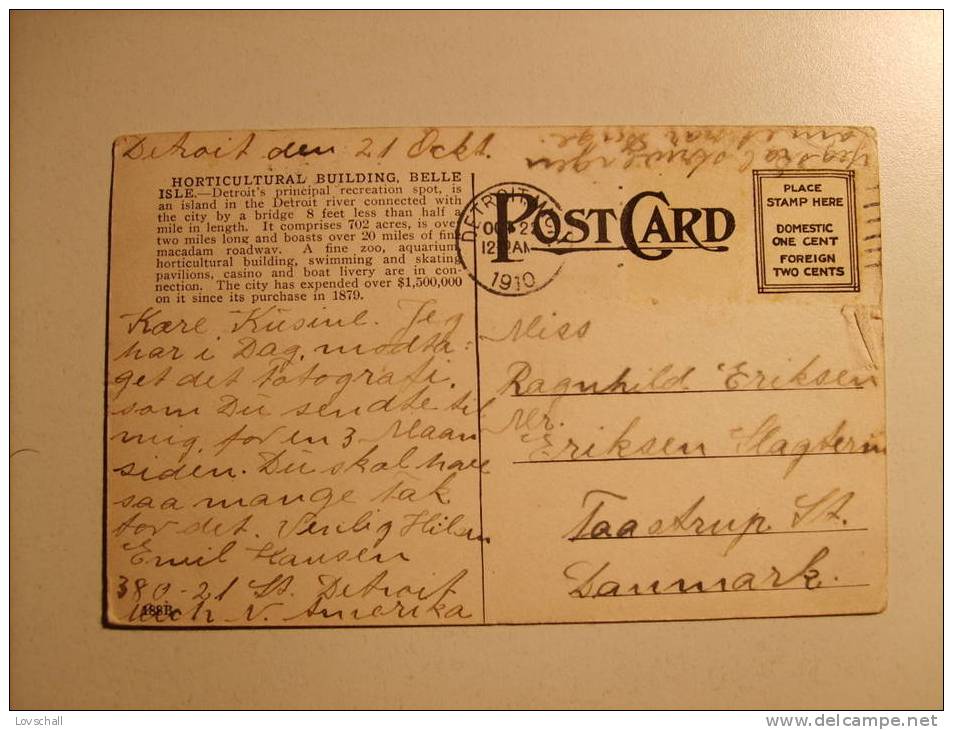 Detroit den 21 Okt.
HORTICULTURAL BUILDING, BELLE
ISLE.—Detroit's principal recreation spot, is
an island in the Detroit river connected with
the city by a bridge 8 feet less than half a
mile in length. It comprises 702 acres, is over
two miles long and boasts over 20 miles of fine
macadam roadway. A fine zoo, aquarium,
horticultural building, swimming and skating
pavilions, casino and boat livery are in con-
nection. The city has expended over $1,500,000
on it since its purchase in 1879.
Kære Kusine. Jeg
har i Dag, modta=
get det Fotografi,
som Du sendte til
mig, for en 3 Maan
siden. Du skal have
saa mange tak
for det. Venlig Hilsen
Emil Hansen
380-21 St. Detroit
Mich N. Amerika
188B
Jeg skal
DETROIT, MICH.
OCT 21
12 AM
1910
POST CARD
PLACE
STAMP HERE
DOMESTIC
ONE CENT
FOREIGN
TWO CENTS
Miss
Ragnhild Eriksen
Mr.
Eriksen Slagterm
Taastrup St.
Danmark.
Lovschall
www.delcampe.net